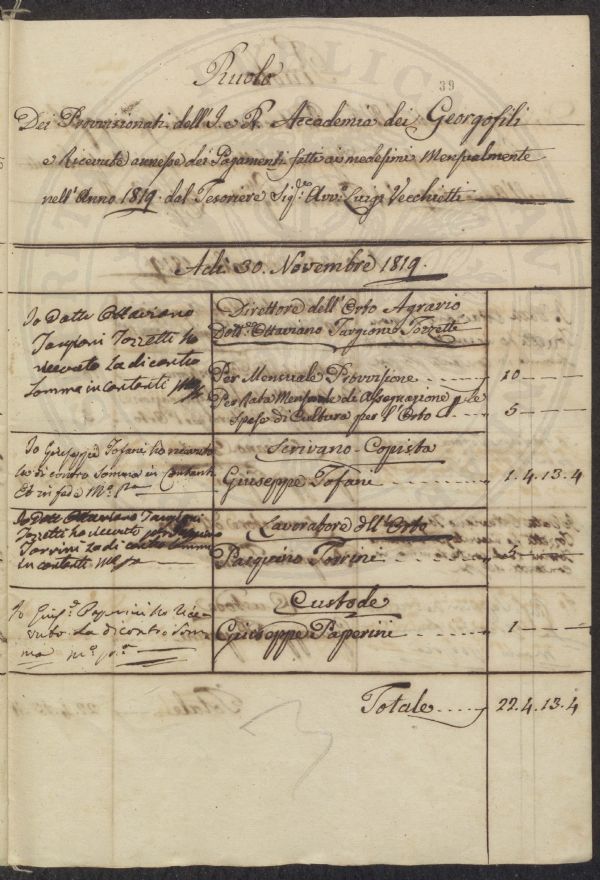 39
Ruolo
Dei Provvisionati dell'I. e R. Accademia dei Georgofili
e Ricevute annesse dei Pagamenti fatti ai medesimi Mensualmente
nell'Anno 1819 dal Tesoriere Sigr. Avvo. Luigi Vecchietti
A dì 30. Novembre 1819.
Io Dottr Ottaviano
Targioni Tozzetti ho
ricevuto la di contro
Somma in contanti Mo. pa.
Direttore dell'Orto Agrario
Dottr. Ottaviano Targioni Tozzetti
Per Mensuale Provvisione 10 — —
Per Rata Mensuale di Assegnazione p. le
Spese di Cultura per l'Orto 5 — —
Io Giuseppe Tofani ho ricevuto
la di contro Somma in Contanti
Et in fede Mo. Pa.
Scrivano Copista
Giuseppe Tofani 1. 4. 13. 4
Io Dottr Ottaviano Targioni
Tozzetti ho ricevuto per Pasquino
Torrini La di contro Somma
in contanti Mo. pa.
Lavoratore dell'Orto
Pasquino Torrini 5 — —
Io Giuse. Paperini ho rice-
vuto La di contro Som-
ma Mo. po.
Custode
Giuseppe Papperini 1 — —
Totale 22. 4. 13. 4